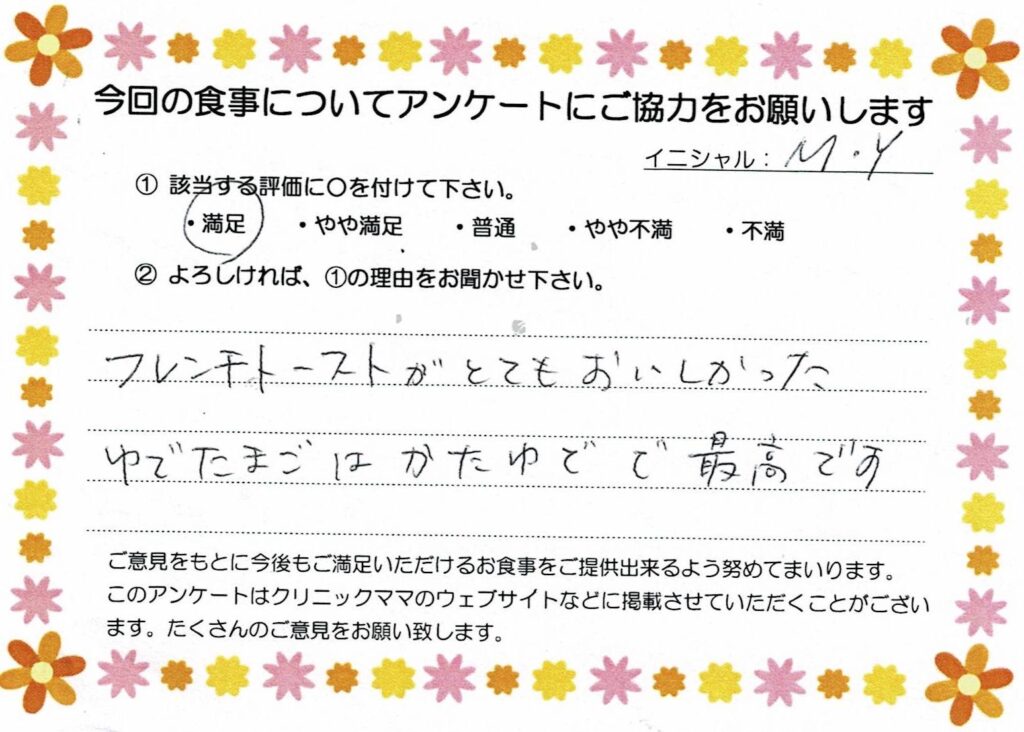 今回の食事についてアンケートにご協力をお願いします
イニシャル： M・Y
① 該当する評価に○を付けて下さい。
・満足 ・やや満足 ・普通 ・やや不満 ・不満
② よろしければ、①の理由をお聞かせ下さい。
フレンチトーストがとてもおいしかった
ゆでたまごはかたゆでで最高です
ご意見をもとに今後もご満足いただけるお食事をご提供出来るよう努めてまいります。
このアンケートはクリニックママのウェブサイトなどに掲載させていただくことがござい
ます。たくさんのご意見をお願い致します。